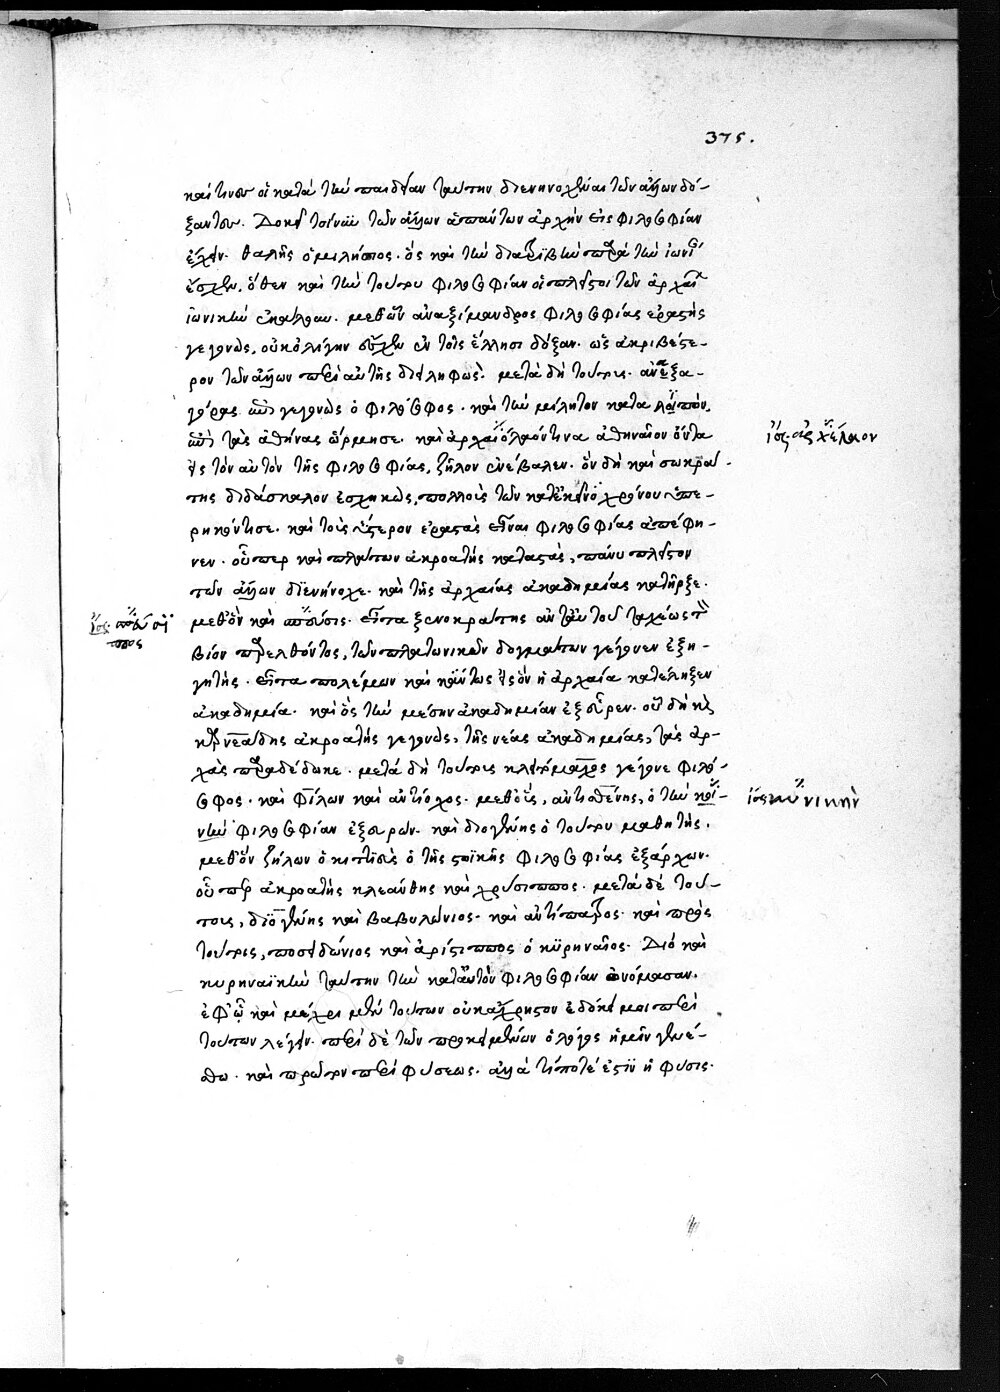 375.
καί τινων οἳ κατὰ τὴν παιδείαν ταύτην διενηνοχέναι τῶν ἄλλων δό-
ξαντων. Δοκεῖ τοίνυν τῶν ἄλλων ἁπάντων ἀρχὴν εἰς φιλοσοφίαν
ἔχειν. θαλῆς ὁ μιλήσιος. ὃς καὶ τὴν διατριβὴν παρὰ τὴν ἰωνί
ἔσχεν. ὅθεν καὶ τὴν τούτου φιλοσοφίαν οἱ πλεῖστοι τῶν ἀρχαί
ἰωνικὴν ἐκάλουν. μεθ' ὃν ἀναξίμανδρος φιλοσοφίας ἐραστὴς
γεγονὼς, οὐκ ὀλίγην ἔσχεν ἐν τοῖς ἕλλησι δόξαν. ὡς ἀκριβέστε-
ρον τῶν ἄλλων περὶ αὐτῆς διειληφώς. μετὰ δὴ τούτοις. ἀναξα-
γόρας γεγονὼς ὁ φιλόσοφος. καὶ τὴν μίλητον καταλοιπὼν.
ἐπὶ τὰς ἀθήνας ὥρμησε. καὶ ἀρχαίόλαόν τινα ἀθηναῖον ὄντα
εἰς τὸν αὐτὸν τῆς φιλοσοφίας, ζῆλον ἐνέβαλεν. ὃν δὴ καὶ σωκρά-
της διδάσκαλον ἐσχηκὼς, πολλοῖς τῶν κατ' ἐκεῖνο χρόνου ὑπε-
ρηκόντισε. καὶ τοῖς ὕστερον ἐραστὰς εἶναι φιλοσοφίας ἀπέφη-
νεν. οὗπερ καὶ πλάτων ἀκροατὴς καταστὰς, πάνυ πλεῖστον
τῶν ἄλλων διενήνοχε. καὶ τῆς ἀρχαίας ἀκαδημίας κατῆρξε.
μεθ' ὃν καὶ ποεύσις. εἶτα ξενοκράτης αὐτοῦ τοῦ ταχέως τὸν
βίον παρελθόντος, τῶν πλατωνικῶν δογμάτων γέγονεν ἐξη-
γητής. εἶτα πολέμων καὶ κάντως εἰς ὃν ἡ ἀρχαία κατέληξεν
ἀκαδημία. καὶ ὃς τὴν μέσην ἀκαδημίαν ἐξεῦρεν. οὗ δὴ καὶ
καρνεάδης ἀκροατὴς γεγονὼς, τῆς νέας ἀκαδημίας, τὰς ἀρ-
χὰς παραδέδωκε. μετὰ δὴ τούτοις κλειτόμαχος γέγονε φιλό-
σοφος. καὶ φίλων καὶ ἀντίοχος. μεθ' οἷς, ἀντισθένης, ὁ τὴν κοι-
νὴν φιλοσοφίαν ἐξευρών. καὶ διογένης ὁ τούτου μαθητής.
μεθ' ὃν ζήλων ὁ κιτιεὺς ὁ τῆς στωϊκῆς φιλοσοφίας ἐξάρχων.
οὗπερ ἀκροατὴς κλεάνθης καὶ χρύσιππος. μετὰ δὲ τού-
τοις, διογένης καὶ βαβυλώνιος. καὶ ἀντίπατρος. καὶ πρὸς
τούτοις, ποσειδώνιος καὶ ἀρίστιππος ὁ κυρηναῖος. Διὸ καὶ
κυρηναϊκὴν ταύτην τὴν κατ' αὐτὸν φιλοσοφίαν ὀνόμασαν.
ἐφ' ᾧ καὶ μέχρι μὲν τούτων οὐκ ἄχρηστον ἐδόκει μοι περὶ
τούτων λέγειν. περὶ δὲ τῶν προκειμένων ὁ λόγος ἡμῖν γενέ-
σθω. καὶ πρῶτον περὶ φύσεως. ἀλλὰ τί ποτέ ἐστιν ἡ φύσις.
ἴσως ἀρχέλαον
ἴσως σπεύσι
ππος
ἴσως κυνικὴν